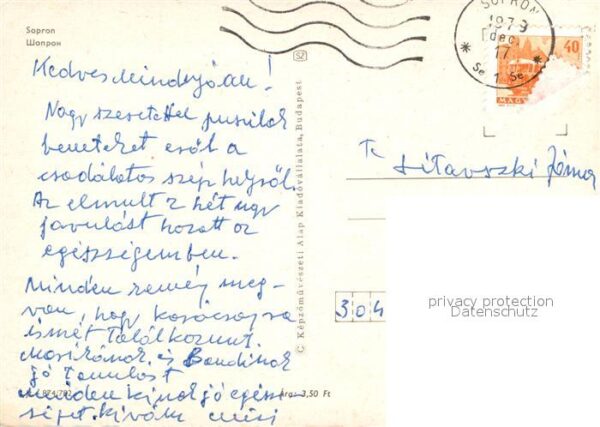 Sopron
Шопрон
Kedves Mindnyájan!
Nagy szeretettel puszilok
beneteket erről a
csodálatos szép helyről.
Az elmult 2 hét nagy
javulást hozott az
egészségemben.
Minden remény meg-
van, hogy karácsonyra
ismét találkozunk.
és Bandinak
jó tanulást
Mindenkinek jó egész-
séget kíván
874/792
Ára: 3,50 Ft
© Képzőművészeti Alap Kiadóvállalata, Budapest
SZ
SOPRON
1979
dec.
17
* Se 1 Se *
40
MAGY
T.
Litavszki János
304
privacy protection
Datenschutz